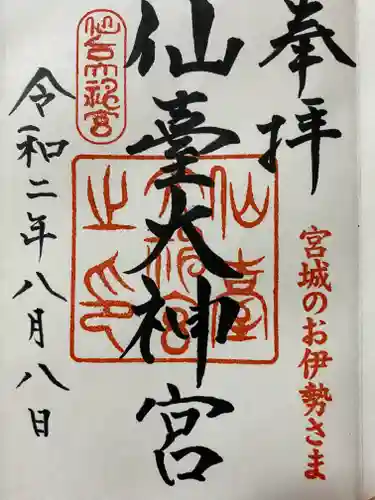 奉拝
宮城のお伊勢さま
仙臺大神宮
仙台大神宮
仙臺大神宮之印
令和二年八月八日